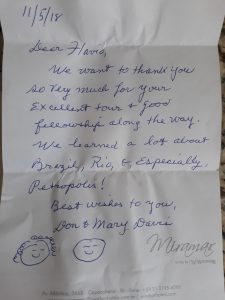 11/5/18
Dear Flavio,
We want to thank you
so very much for your
Excellent tour & good
fellowship along the way.
We learned a lot about
Brazil, Rio, & Especially
Petropolis!
Best wishes to you,
Don & Mary Davis
Miramar